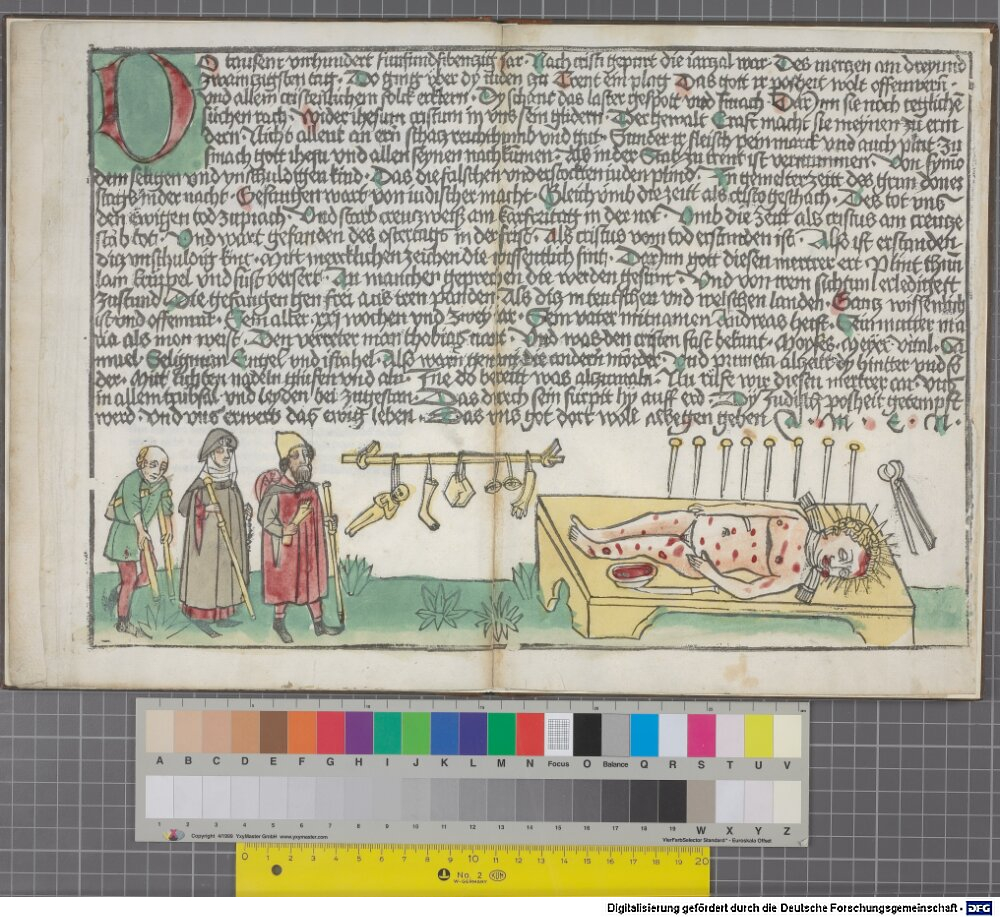 Do tausent virhundert funfundsibenzig iar · Nach cristi gepurt die iarzal war · Des merzen am drey und
zwainzigsten tag · Do ging vber dy iuden zu Trent ein plag · Das gott ir posheit wolt offenwern
und allem cristenlichem folck erklern · Dy schant das laster gespott und smach · Dar Inn sie noch tegliche
suchen rach · Wider ihesum cristum in uns sein glidern · Der hewalt craft macht sie meynen zu ern
dern · Nicht allein an ern schatz reichthumb und gut · Sunder ir fleisch pein marck und auch plut Zu
smach gott ihesu und allen seynen nachkumen · Als in der Stat zu trent ist vernummen · Von Symo
dem seligen und unschuldigen kind · Das die falschen verstockten iuden plind · In gemelter zeit des grun dones
stags in der nacht · Gefangen wart von iudischer macht · Gleich umb die zeit als cristo geschach · Des tot uns
den ewigen tod zuprach · Und starb creuzweiß am karfreitag in der not · Umb die zeit als cristus am creuze
starb tot · Und wart gefunden des ostertags in der frist · Als cristus vom tod erstanden ist · Also ist erstanden
diz unschuldig kint · Mit mercklichen zeichen die wissentlich sint · Dar Inn gott diesen mertrer ert · Plint thum
lam krüppel und sust versert · In manchen geprechen die werden gesunt · Und von irem sichtum erledichett
zustund · Die gefangen hen frei aus iren panden Als diz in teutschen und welschen landen · Ganz wissenlich
ist und offenwar · Sein alter xxi wochen und zwey iar · Sein vater mit namen Andreas heist · Sein mutter ma
ria als mon weist · Den verreter man thobias nant · Und was den cristen fast bekant · Moyses · Meyer · vital · Sa
muel · Seligman Engel und israhel · Als warn genent die andern mörder · Und pruneta alzeit dy hinter und fö
der · Mit lichten nadeln grusen und aln · Die do bereit was alzumaln · Nu rüfe wir diesen mertrer an · uns
in allem trubsal und leyden bei zugestan · Das durch sein furpit hy auf erd · Dy Judisch posheit gedempft
werd · Und uns erwerb das ewig leben · Das uns got dort woll alwegen geben · A · M · E · N ·
A B C D E F G H I J K L M N Focus O Balance Q R S T U V
1 2 3 4 5 6 7 8 9 10 11 12 13 14 15 16 17 18 19 W X Y Z
Copyright 4/1999 YxyMaster GmbH www.yxymaster.com
VierFarbSelector Standard* - Euroskala Offset
0 1 2 3 4 5 6 7 8 9 10 11 12 13 14 15 16 17 18 19 20
No. 2
W-GERMANY
KUM
Digitalisierung gefördert durch die Deutsche Forschungsgemeinschaft - DFG